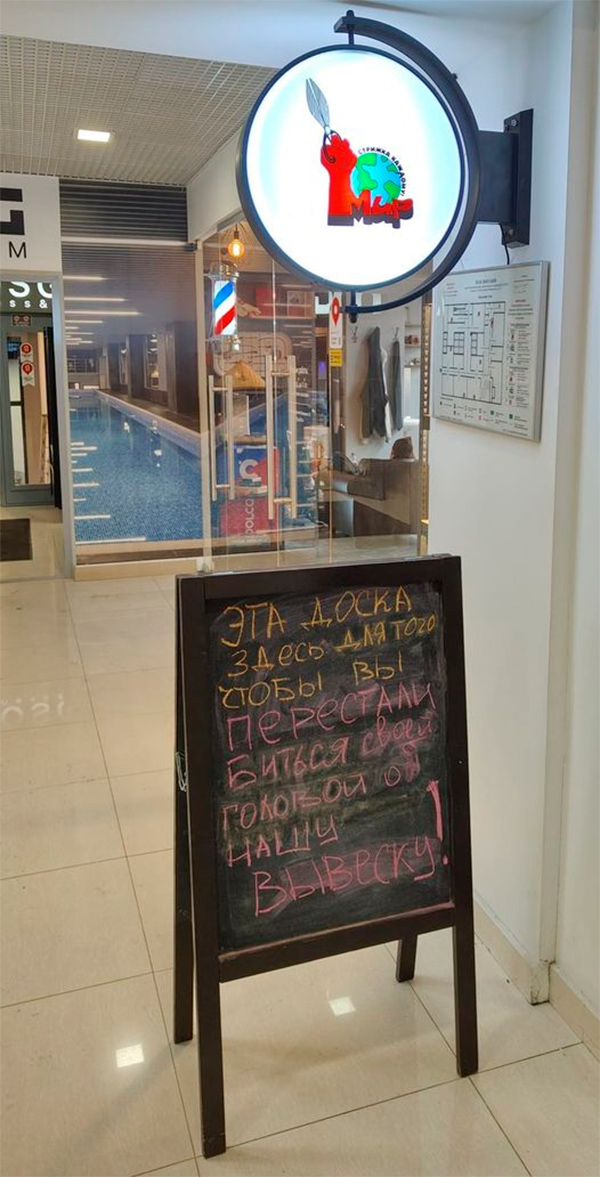 СТРИЖКА КАЖДОМУ
Мыр
М
ЭТА ДОСКА
ЗДЕСЬ ДЛЯ ТОГО
ЧТОБЫ ВЫ
ПЕРЕСТАЛИ
БИТЬСЯ своей
ГОЛОВОЙ ОБ
НАШУ
ВЫВЕСКУ!